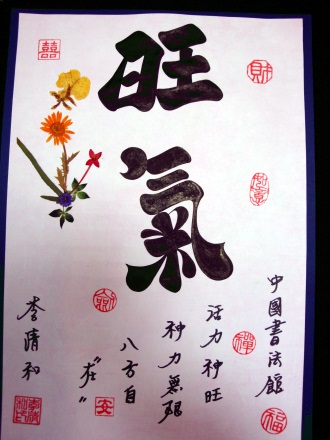 旺氣
中國書法館
活力神旺
神力無限
八方自
"在"
李清和
囍
財
禪
福